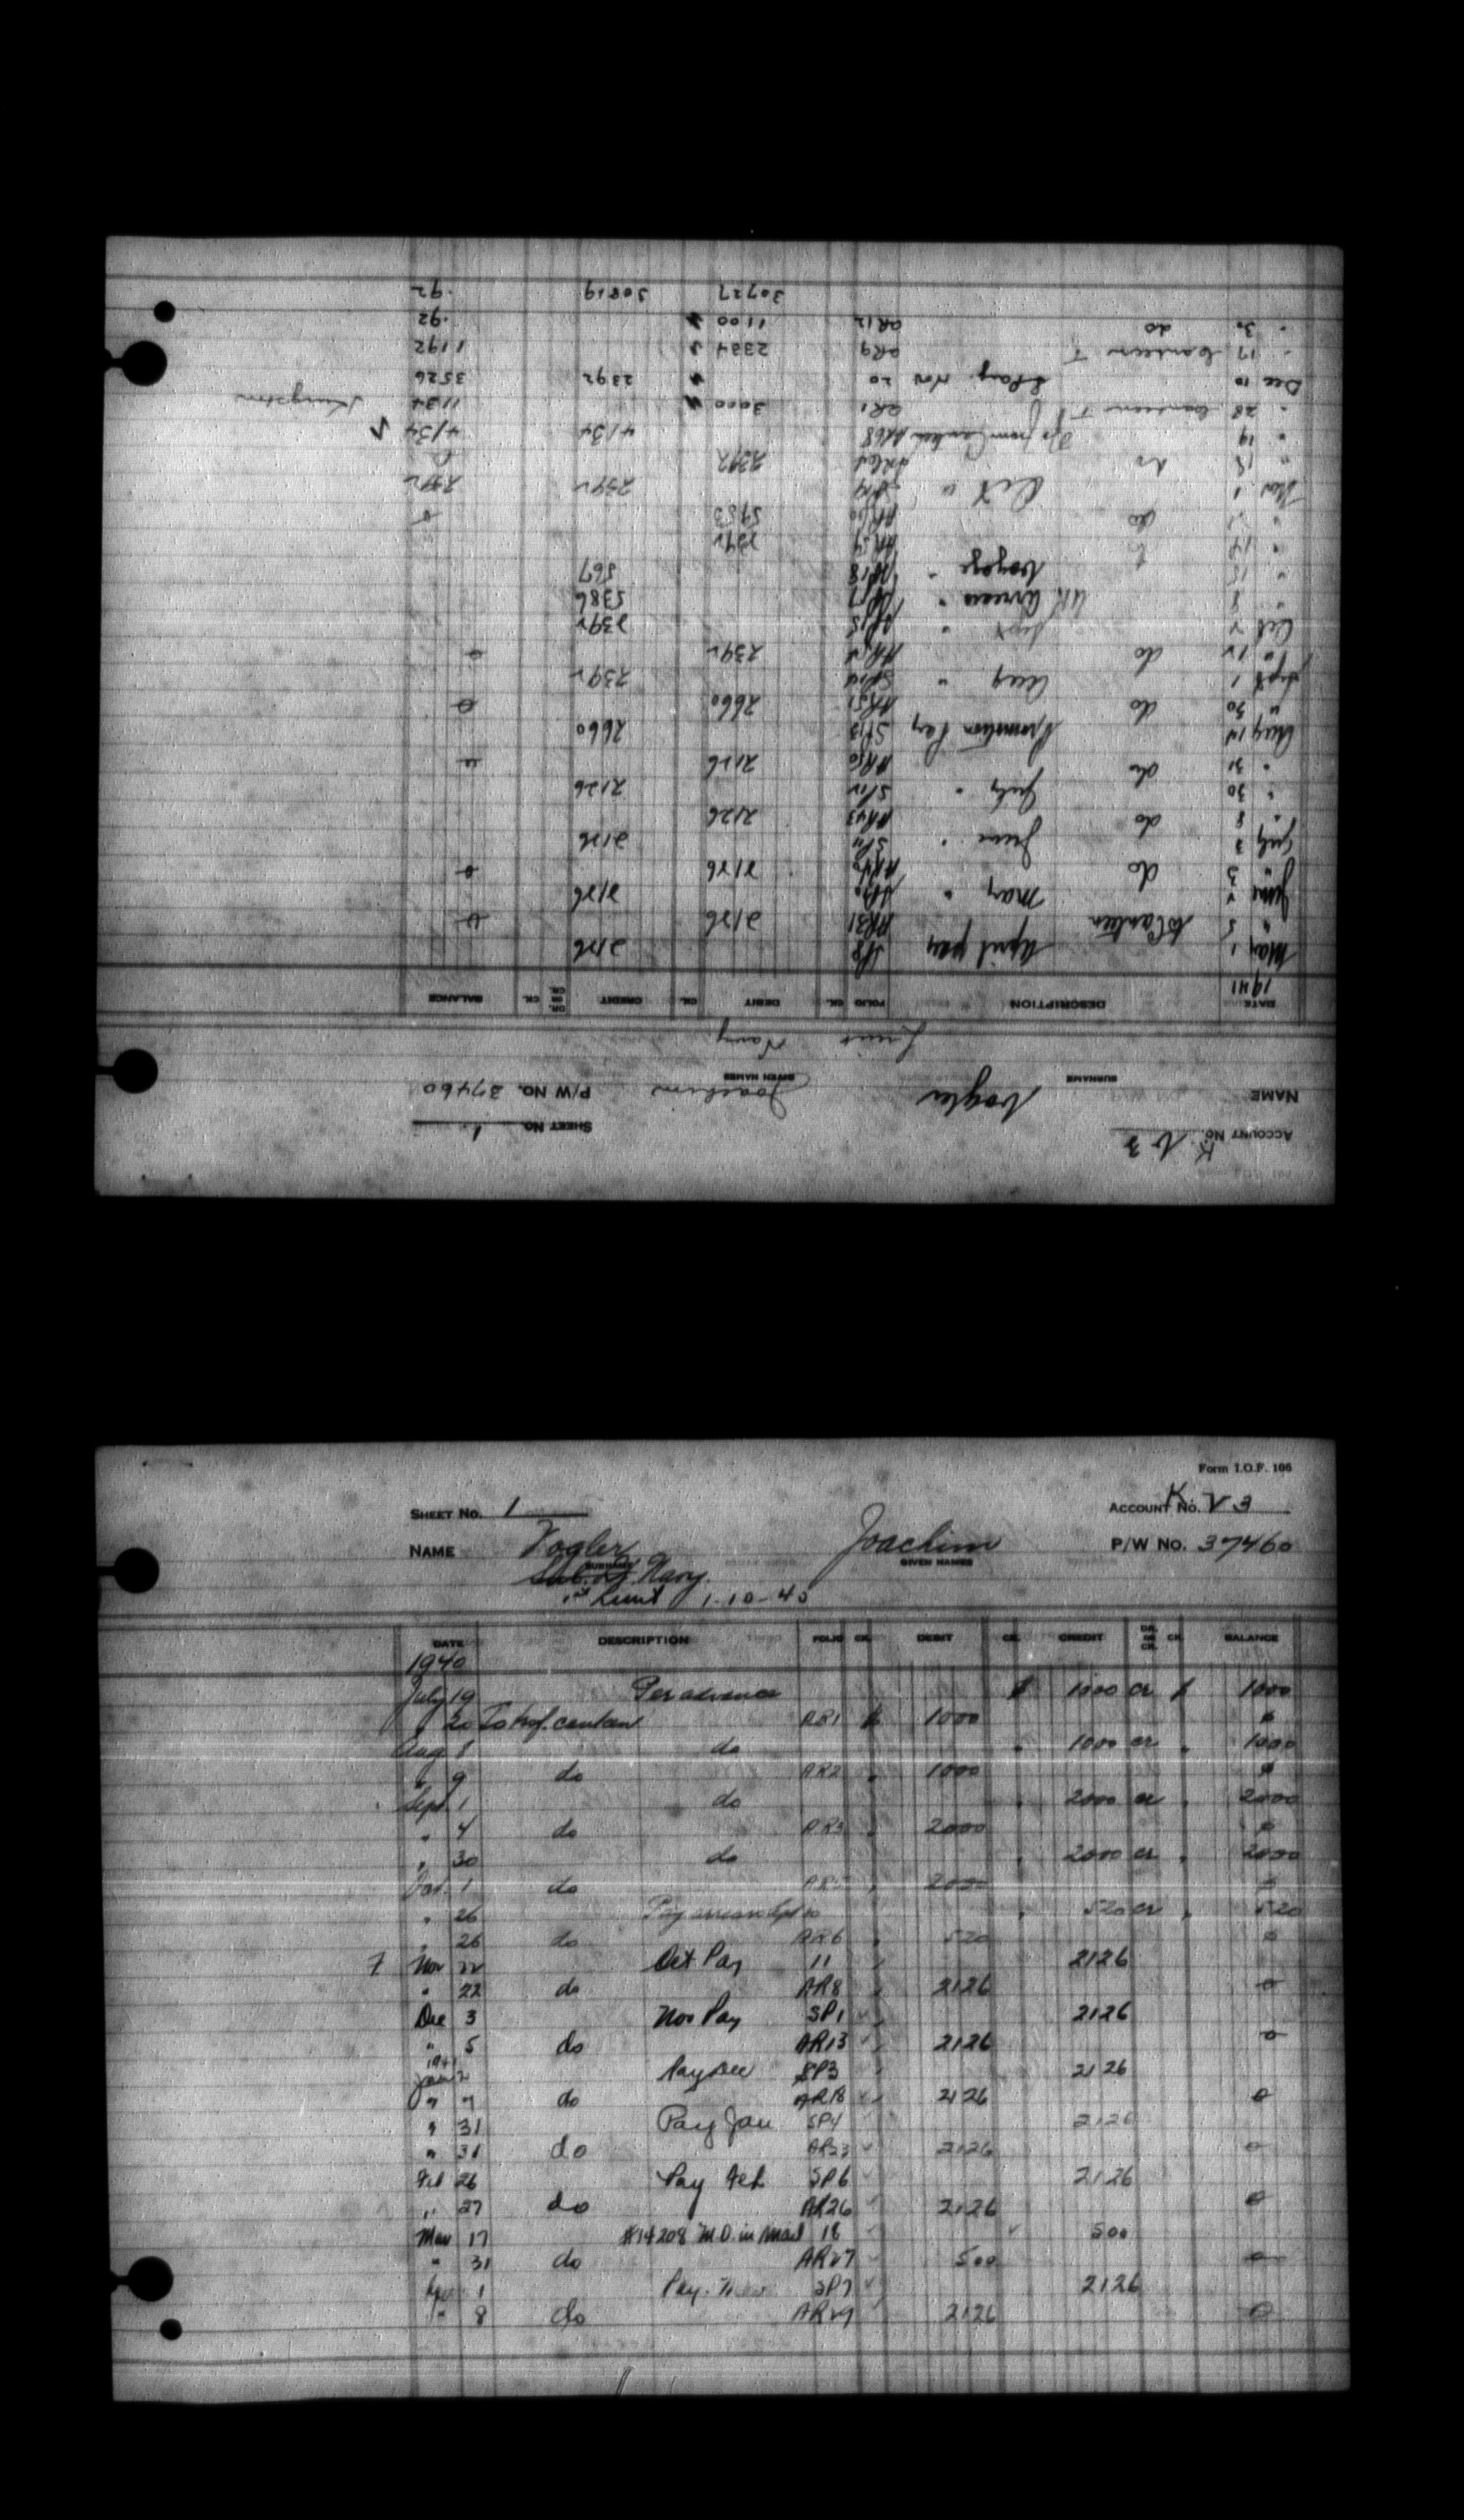 ACCOUNT NO. K. V 3
SHEET NO. 1
NAME Vogler Joachim P/W NO. 37460
SURNAME GIVEN NAMES
Lieut Navy
DATE DESCRIPTION FOLIO CK. DEBIT CK. CREDIT DR. OR CR. CK. BALANCE
1941
May 1 April pay SP8 2126
" 5 to Canteen AR31 2126 0
June 2 May " 2126
" 3 do 2126 0
July 2 June " SP11 2126
" 8 do AR43 2126
" 30 July " SP12 2126
" 31 do AR50 2126 0
Aug 14 Promotion Pay SP13 2660
" 30 do AR51 2660 0
Sept 1 Aug " SP14 2392
" 12 do 2392 0
Oct 2 Sept " SP15 2392
" 9 UK Arrears " SP17 5386
" 15 Voyage " SP18 567
" 17 AR59 2392
" do AR60 5953 0
Nov 1 Oct " 2392 2392
" 15 do 2392 0
" 19 from Canteen AR68 4134 4134
" 28 Canteen T AR1 3000 1134 Kingston
Dec 10 Pay Nov 20 2392 3526
" 17 Canteen T AR9 2334 1192
" 30 do AR12 1100 .92
30727 30819 .92
Form I.O.F. 106
SHEET NO. 1 ACCOUNT NO. K. V 3
NAME Vogler Joachim P/W NO. 37460
SURNAME GIVEN NAMES
Sub. Lt. Navy.
1st Lieut 1-10-40
DATE DESCRIPTION FOLIO CK. DEBIT CK. CREDIT DR. OR CR. CK. BALANCE
1940
July 19 Per advance 1000 cr 1000
" 20 To trsf. canteen AR1 1000 0
Aug 8 do 1000 cr 1000
" 9 do AR2 1000 0
Sept 1 do 2000 cr 2000
" 4 do AR3 2000 0
" 30 do 2000 cr 2000
Oct. 1 do 2000 0
" 26 Pay arrears Sept 30 520 cr 520
" 26 do AR6 520 0
7 Nov 22 Oct Pay 11 2126
" 22 do AR8 2126 0
Dec 3 Nov Pay SP1 2126
" 5 do AR13 2126 0
1941
Jan 2 Pay Dec SP3 2126
" 7 do AR18 2126 0
" 31 Pay Jan SP4 2126
" 31 do AR23 2126 0
Feb 26 Pay Feb SP6 2126
" 27 do AR26 2126 0
Mar 17 #14208 M.O. in Mail 18 500
" 31 do AR27 500 0
Apr 1 Pay. SP7 2126
" 8 do AR29 2126 0